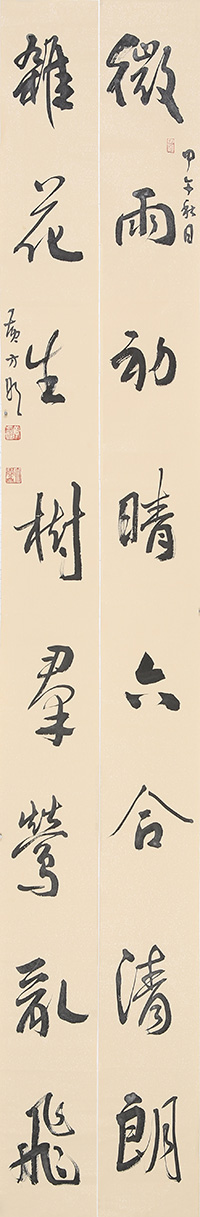 微雨初晴六合清朗
甲午秋月
雜花生樹羣鶯亂飛
黃方